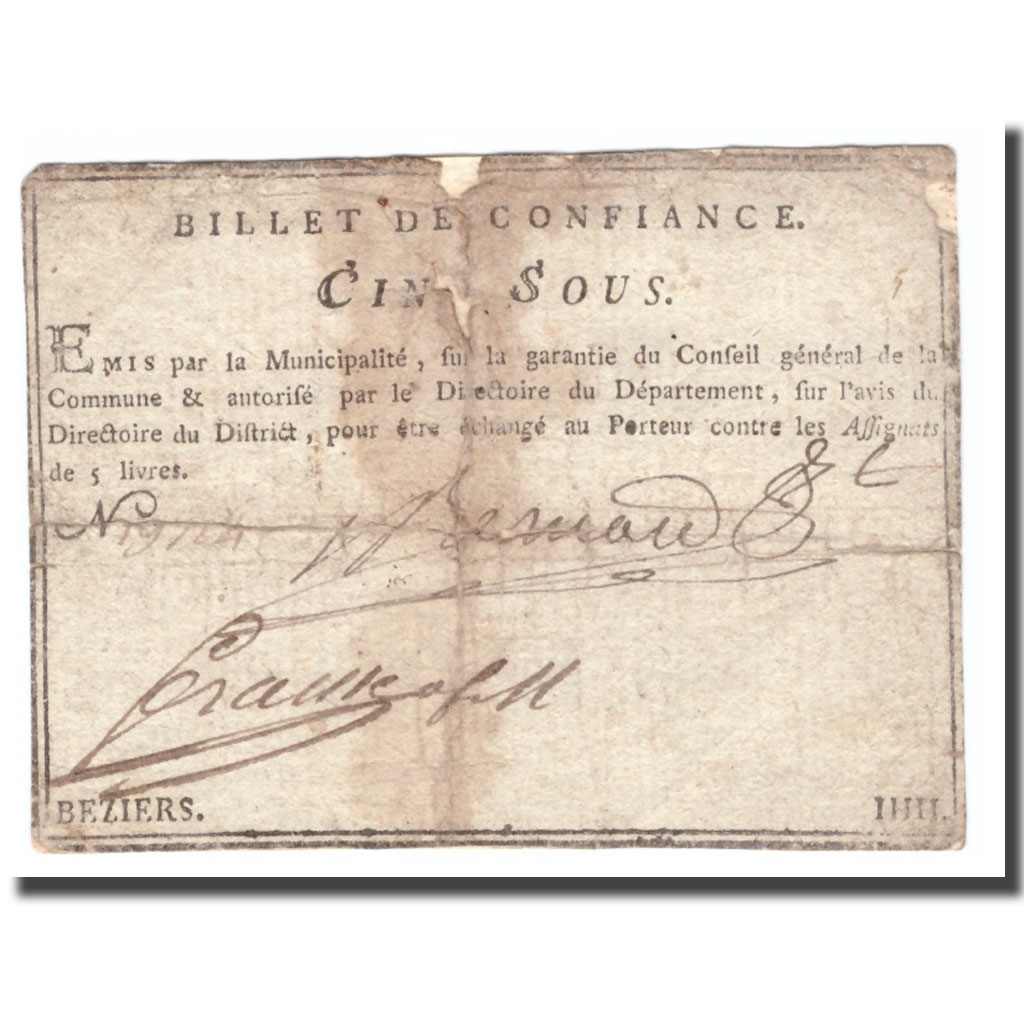 BILLET DE CONFIANCE.
CIN SOUS.
EMIS par la Municipalité, ſur la garantie du Conſeil général de la
Commune & autoriſé par le Directoire du Département, ſur l'avis du
Directoire du Diſtrict, pour être échangé au Porteur contre les Aſſignats
de 5 livres.
N
BEZIERS. IIIII.